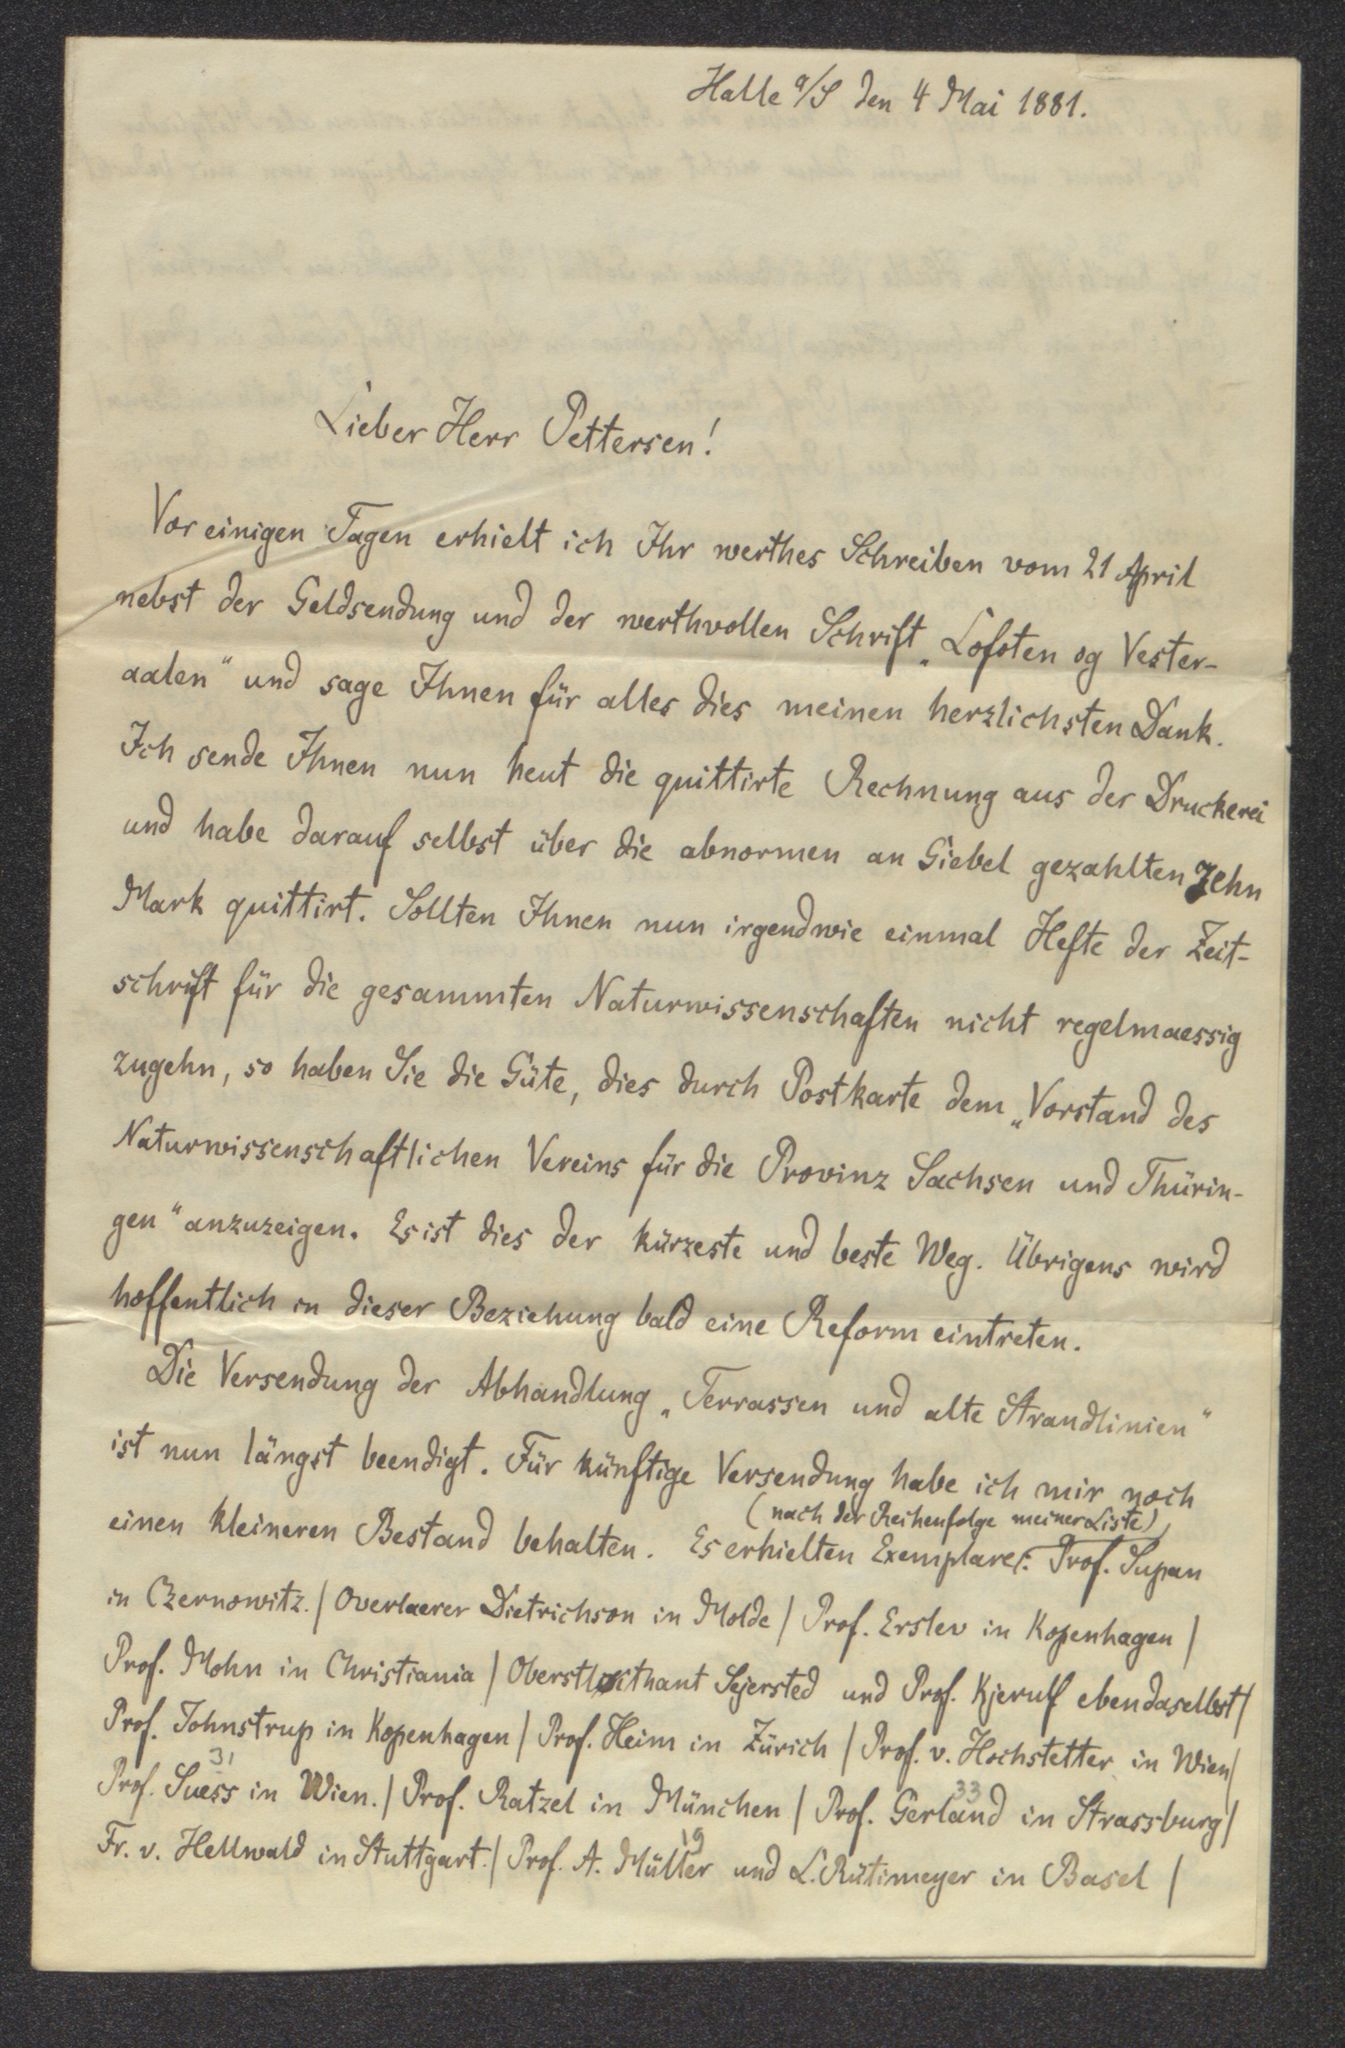 Halle a/S den 4 Mai 1881.
Lieber Herr Pettersen!
Vor einigen Tagen erhielt ich Ihr werthes Schreiben vom 21 April
nebst der Geldsendung und der werthvollen Schrift „Lofoten og Vester-
aalen“ und sage Ihnen für alles dies meinen herzlichsten Dank.
Ich sende Ihnen nun heut die quittirte Rechnung aus der Druckerei
und habe darauf selbst über die abnormen an Giebel gezahlten Zehn
Mark quittirt. Sollten Ihnen nun irgendwie einmal Hefte der Zeit-
schrift für die gesammten Naturwissenschaften nicht regelmaessig
zugehn, so haben Sie die Güte, dies durch Postkarte dem „Vorstand des
Naturwissenschaftlichen Vereins für die Provinz Sachsen und Thürin-
gen“ anzuzeigen. Es ist dies der kürzeste und beste Weg. Übrigens wird
hoffentlich in dieser Beziehung bald eine Reform eintreten.
Die Versendung der Abhandlung „Terrassen und alte Strandlinien“
ist nun längst beendigt. Für künftige Versendung habe ich mir noch
(nach der Reihenfolge meiner Liste)
einen kleineren Bestand behalten. Es erhielten Exemplare: Prof. Supan
in Czernowitz. / Overlaerer Dietrichson in Molde / Prof. Erslev in Kopenhagen /
Prof. Mohn in Christiania / Sejersted und Prof. Kjerulf ebendaselbst /
Prof. Johnstrup in Kopenhagen / Prof. Heim in Zürich / Prof. v. Hochstetter in Wien /
31
Prof. Suess in Wien. / Prof. Ratzel in München / Prof. Gerland in Strassburg /
33
Fr. v. Hellwald in Stuttgart. / Prof. A. Müller und L. Rütimeyer in Basel /
19